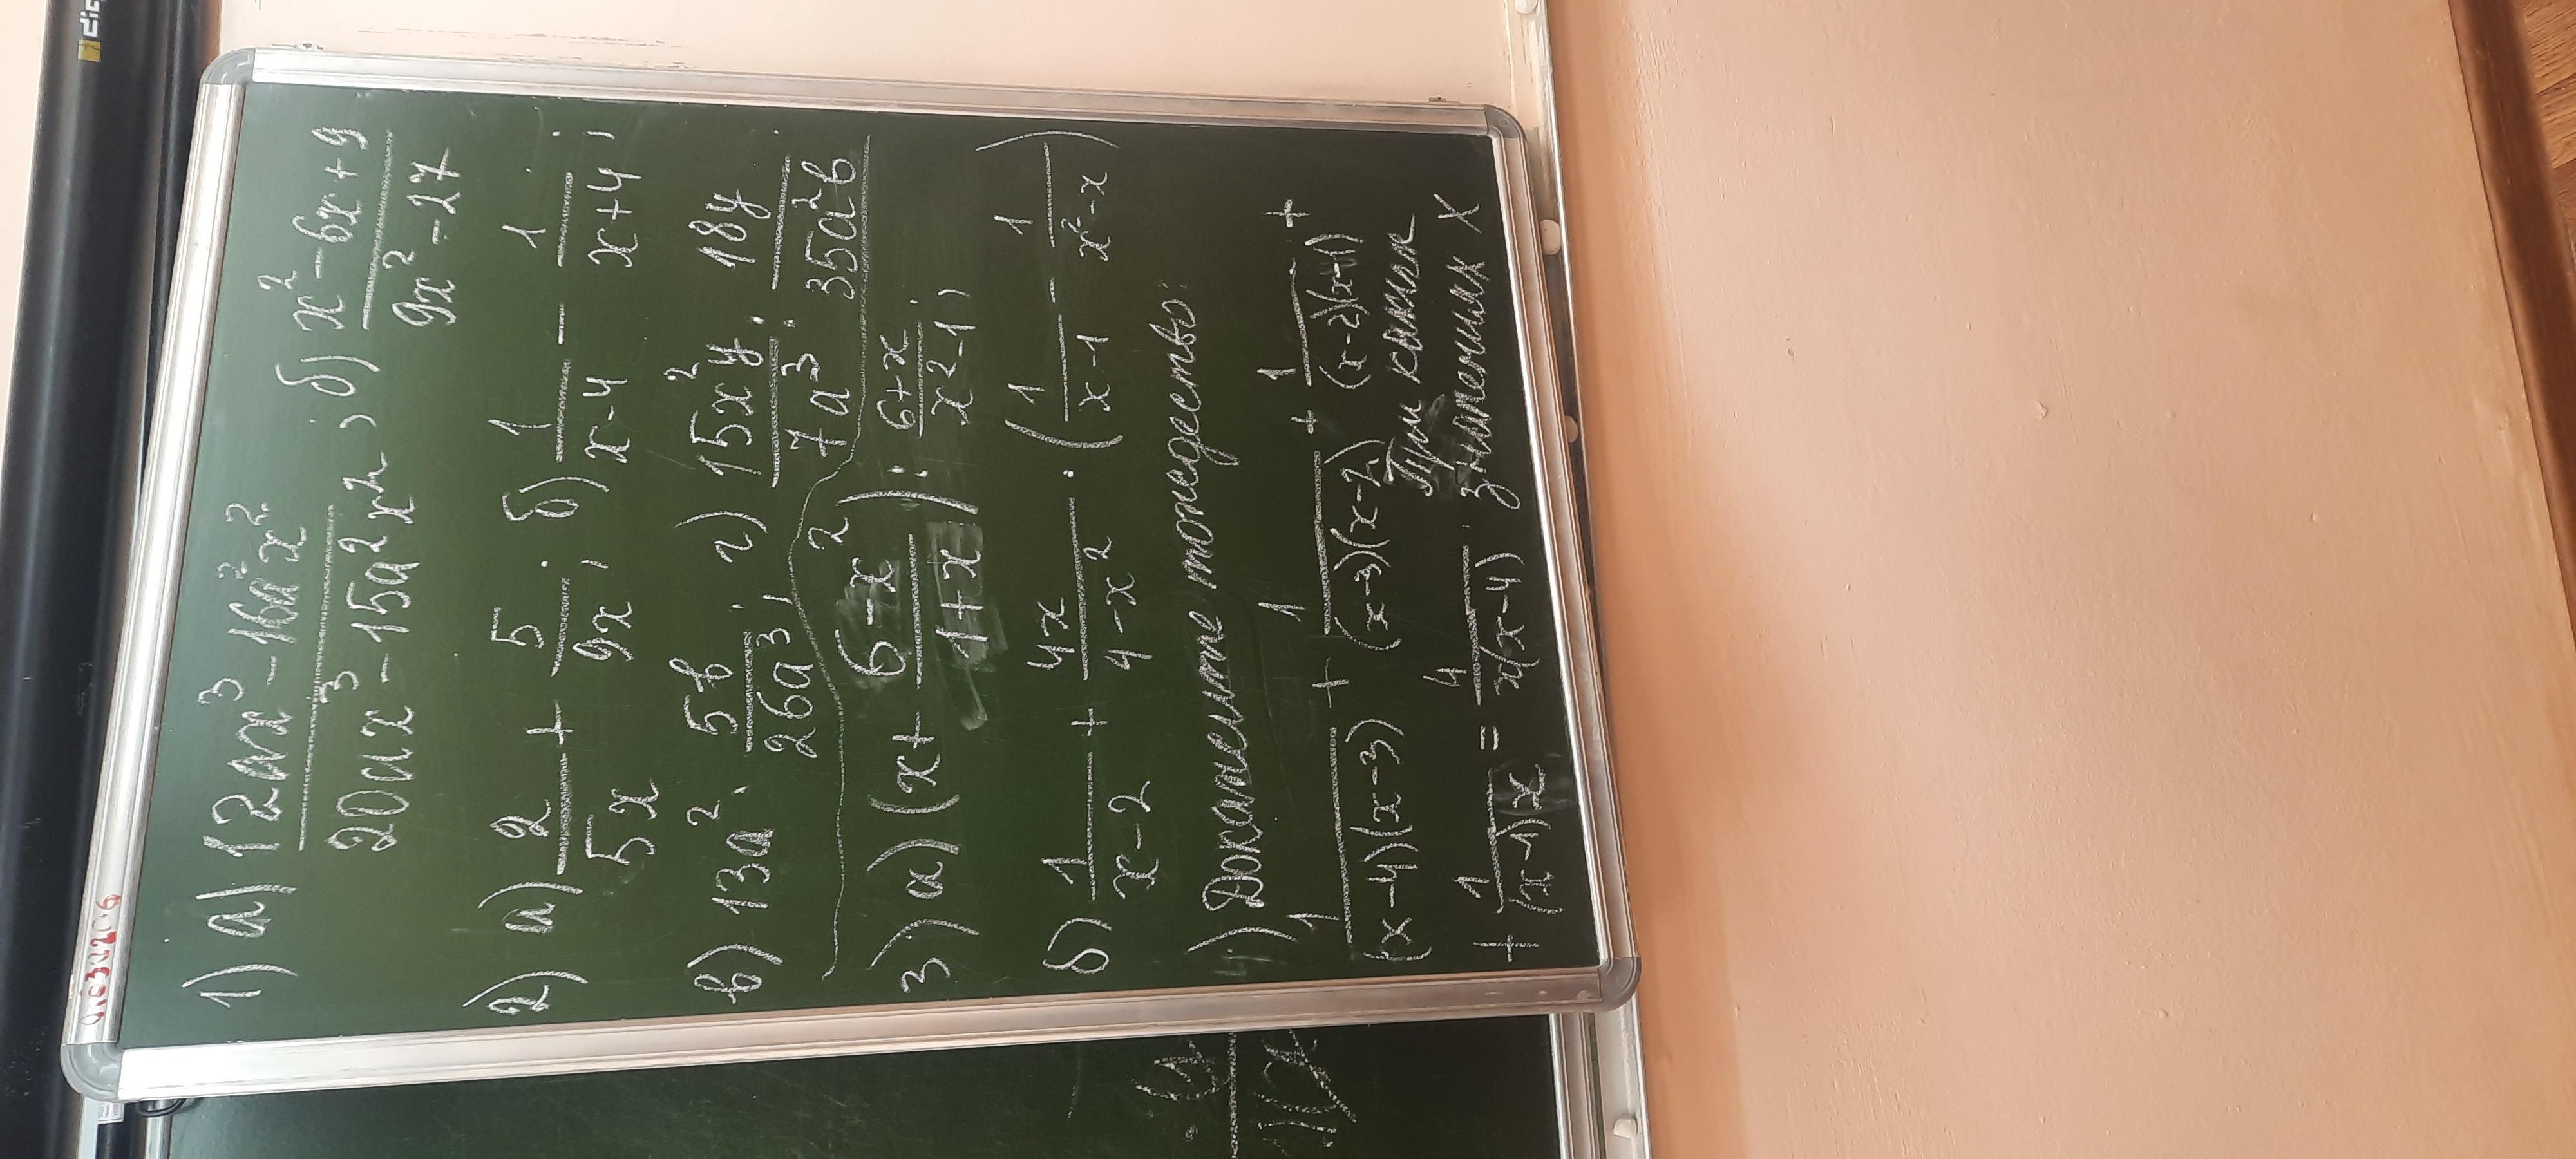 1) а) (12ax³ - 16a²x²)/(20ax³ - 15a²x²); б) (x² - 6x + 9)/(9x² - 27)
2) а) 2/(5x) + 5/(9x); б) 1/(x-4) - 1/(x+4);
в) 13a² · 5b/(26a³); г) 15x²y/(7a³) : 18y/(35a²b);
3) а) (x + (6-x²)/(1+x)) : (6+x)/(x²-1);
б) 1/(x-2) + 4x/(4-x²) · (1/(x-1) - 1/(x²-x))
4) Докажите тождество:
1/((x-4)(x-3)) + 1/((x-3)(x-2)) + 1/((x-2)(x-1)) +
+ 1/((x-1)x) = 4/(x(x-4)). При каких
значениях x